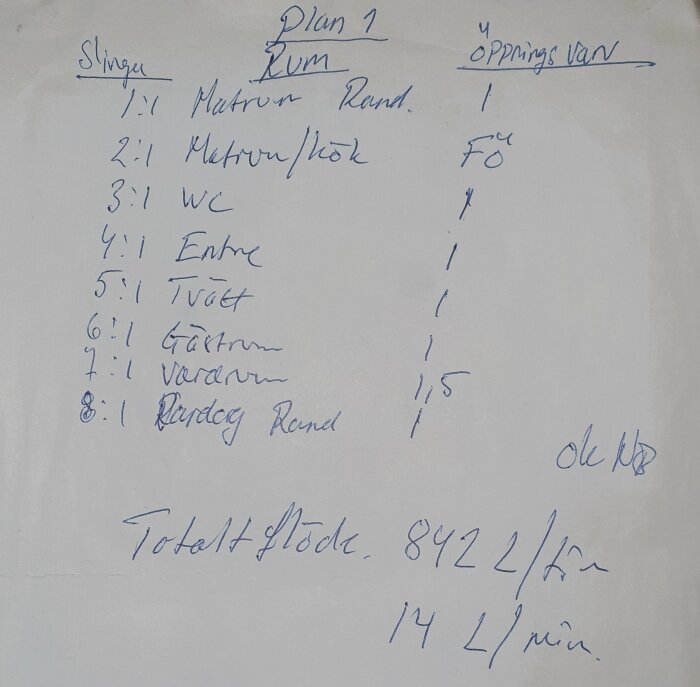 Plan 1
Slinga Rum Öppnings varv
1:1 Matrum Rand. 1
2:1 Matrum/kök FÖ
3:1 WC 1
4:1 Entre 1
5:1 Tvätt 1
6:1 Gästrum 1
7:1 Vardrum 1,5
8:1 Rand 1
ok
Totalt flöde. 842 L/tim
14 L/min.